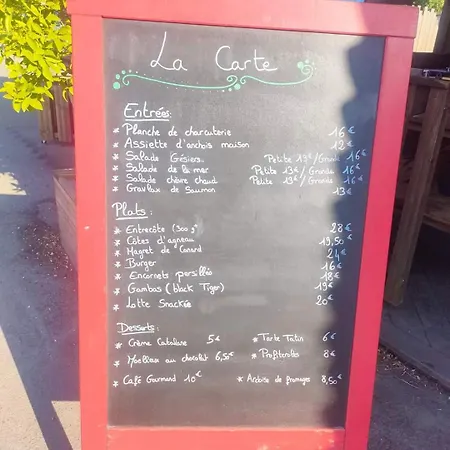 La Carte
Entrées:
* Planche de charcuterie 16€
* Assiette d'anchois maison 12€
* Salade Grésiers. Petite 13€/Grande 16€
* Salade de la mer Petite 13€/Grande 16€
* Salade chèvre chaud Petite 13€/Grande 16€
* Gravlax de Saumon 13€
Plats:
* Entrecôte (300g) 28€
* Côtes d'agneau 19,50€
* Magret de Canard 24€
* Burger 16€
* Encornets persillés 18€
* Gambas (black Tiger) 19€
* Lotte Snackée 20€
Desserts:
* Crème Catalane 5€ * Tarte Tatin 6€
* Moelleux au chocolat 6,50€ * Profiteroles 8€
* Café Gourmand 10€ * Ardoise de fromages 8,50€